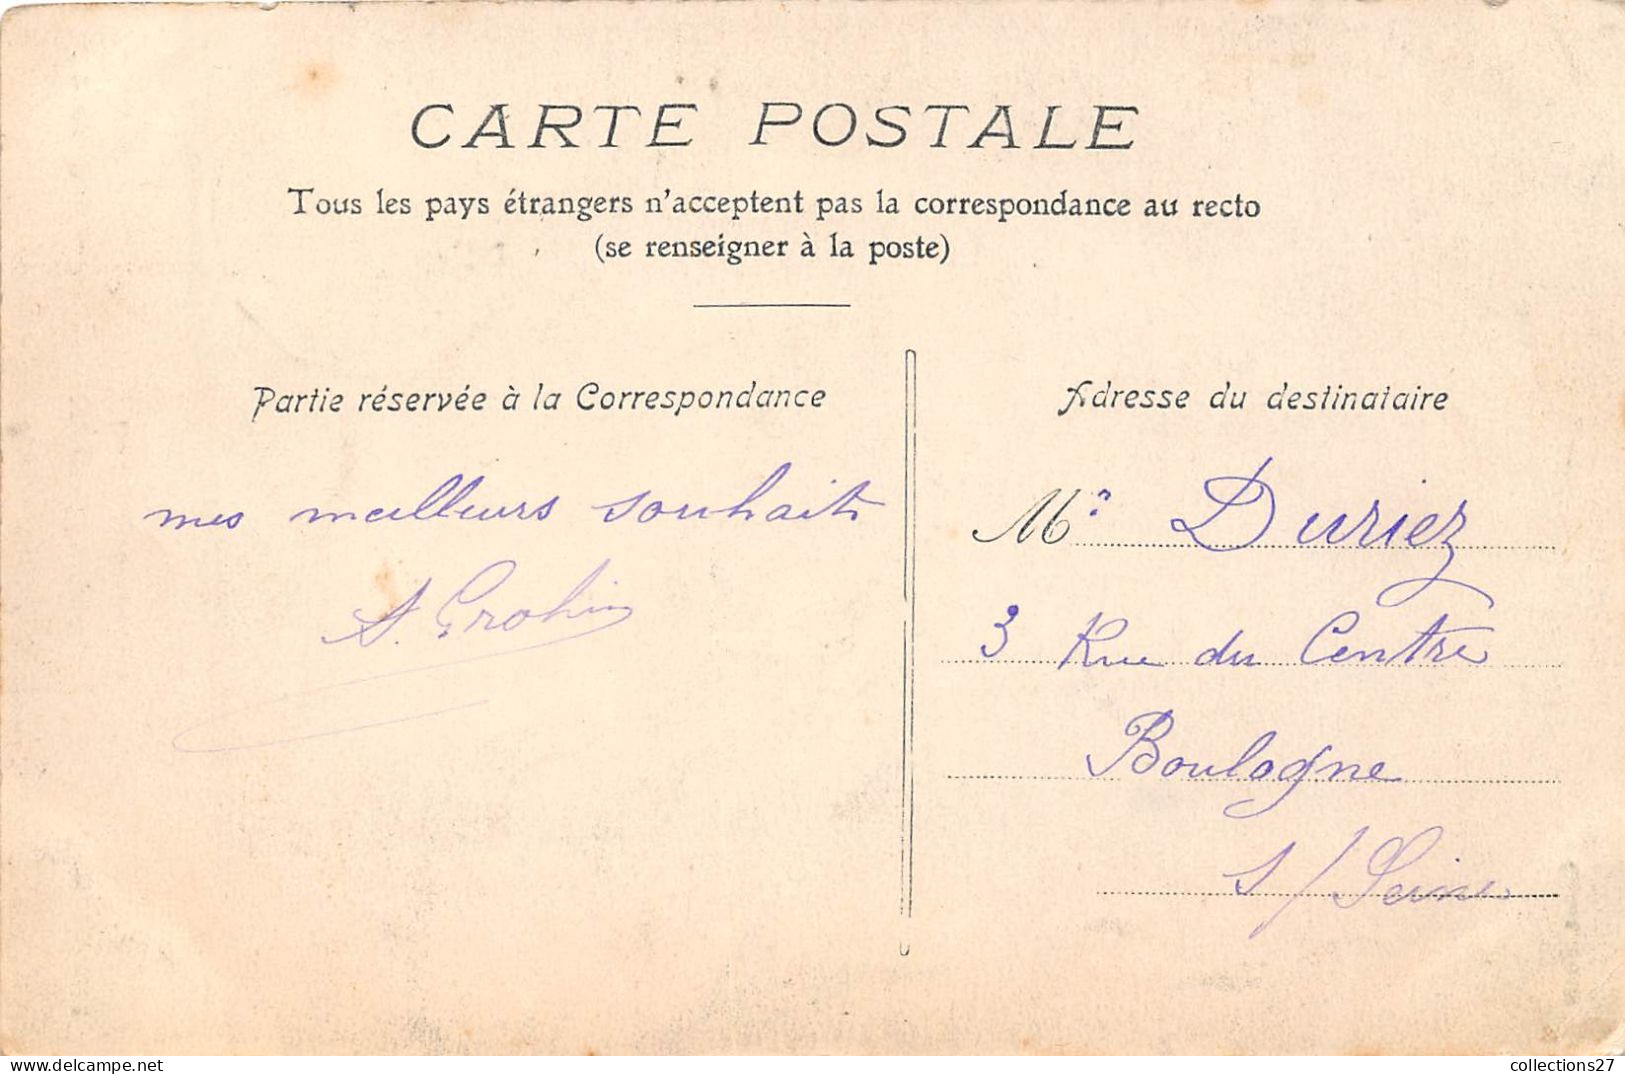 CARTE POSTALE
Tous les pays étrangers n'acceptent pas la correspondance au recto
(se renseigner à la poste)
Partie réservée à la Correspondance
mes meilleurs souhaits
A.
Adresse du destinataire
Mr Duriez
3 Rue du Centre
Boulogne
s/Seine
delcampe.net
collections27